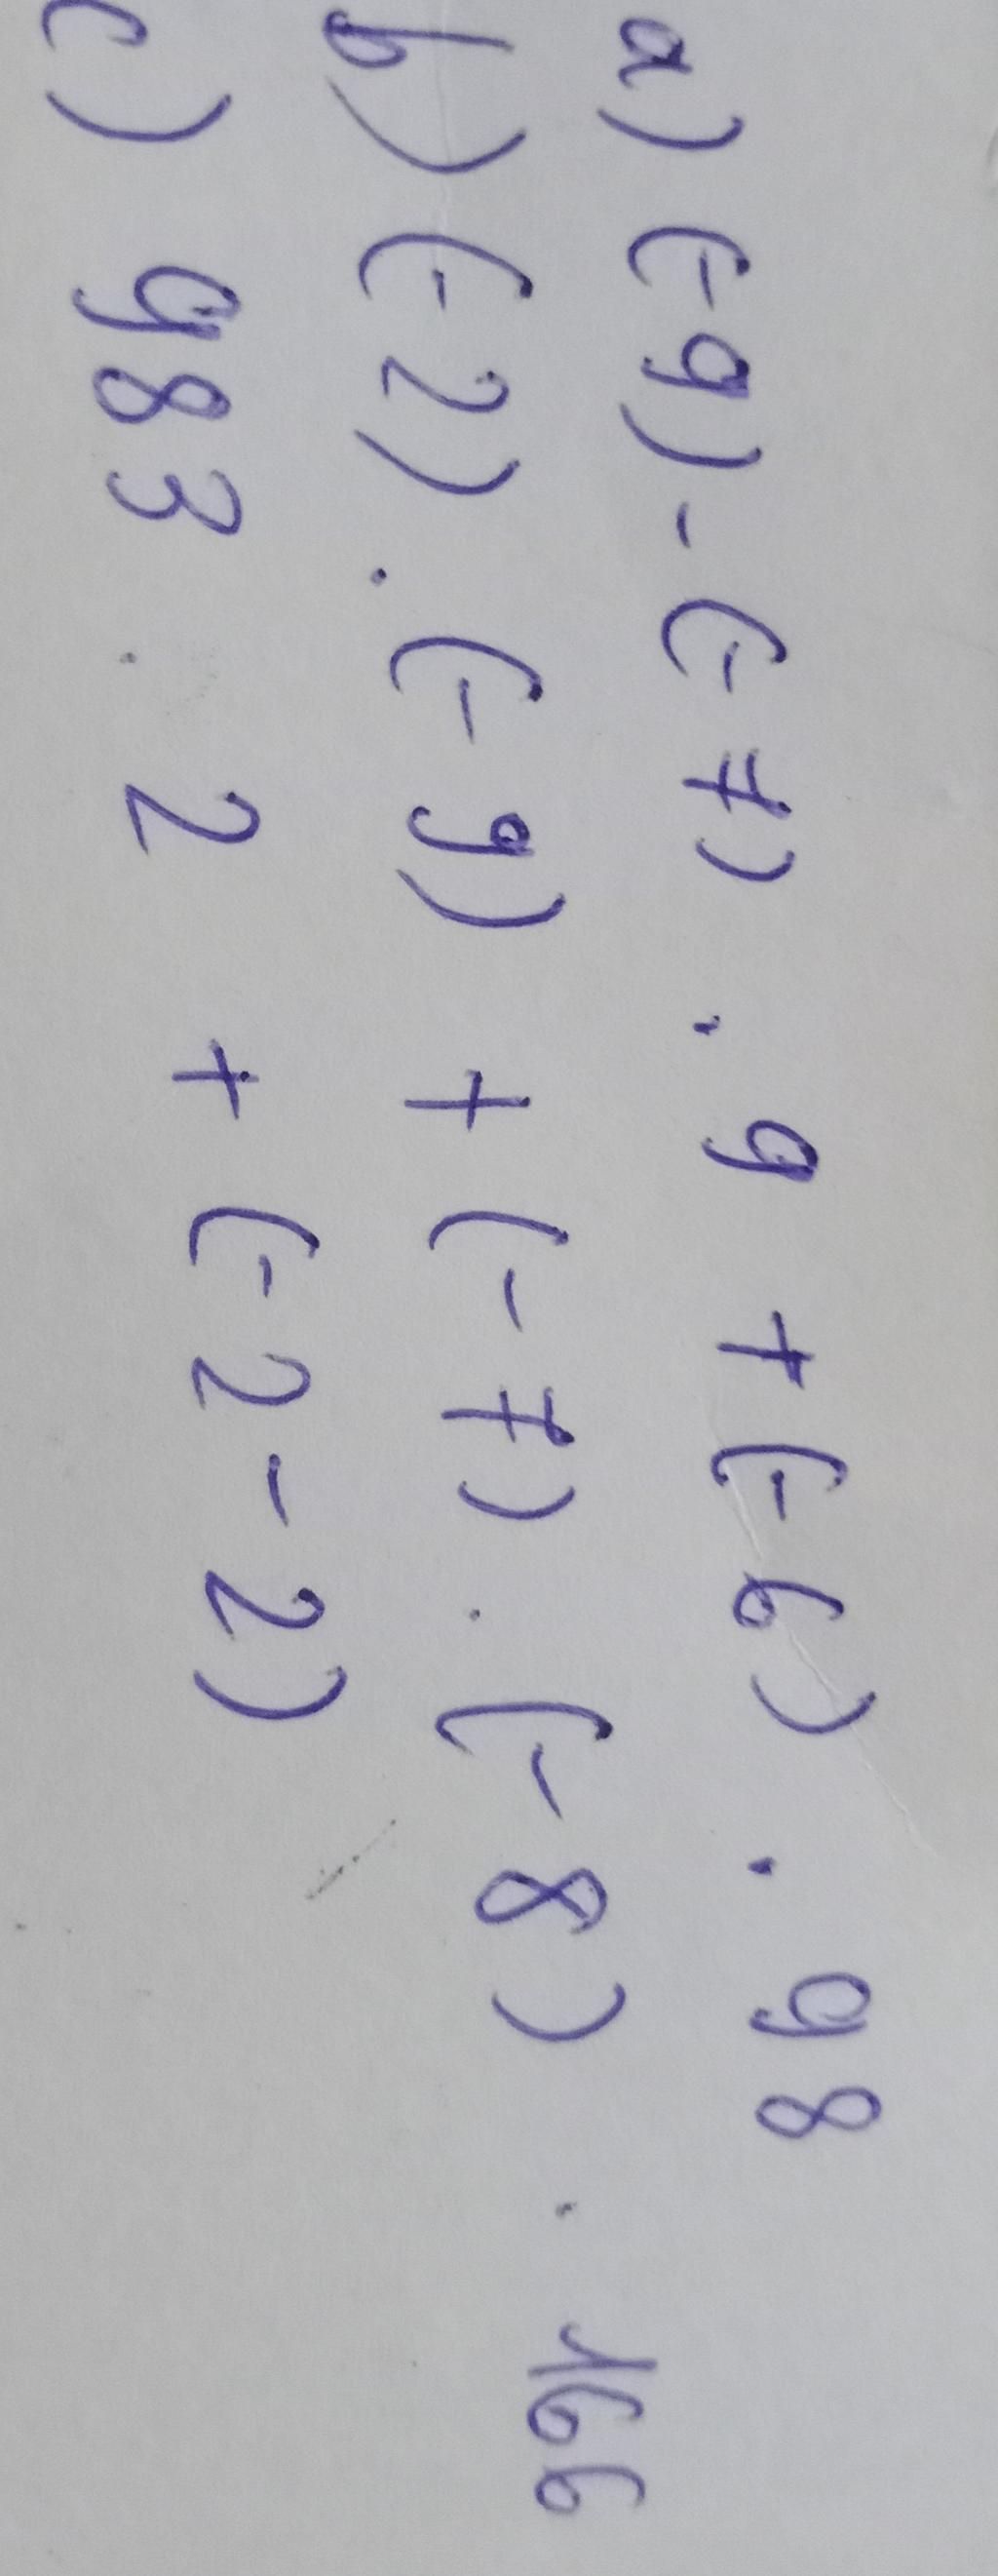 a) (-9) - (-7) . 9 + (-6) . 98
b) (-2) . (-9) + (-7) . (-8) . 166
c) 983 . 2 + (-2-2)